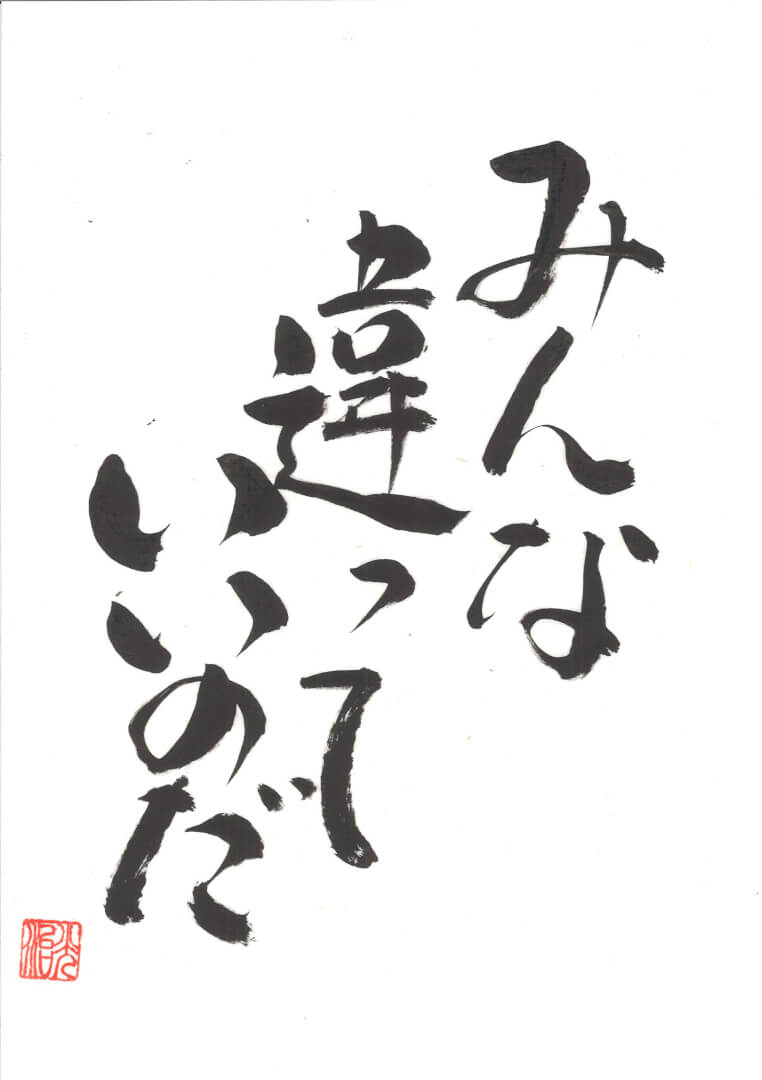 みんな
違って
いいのだ